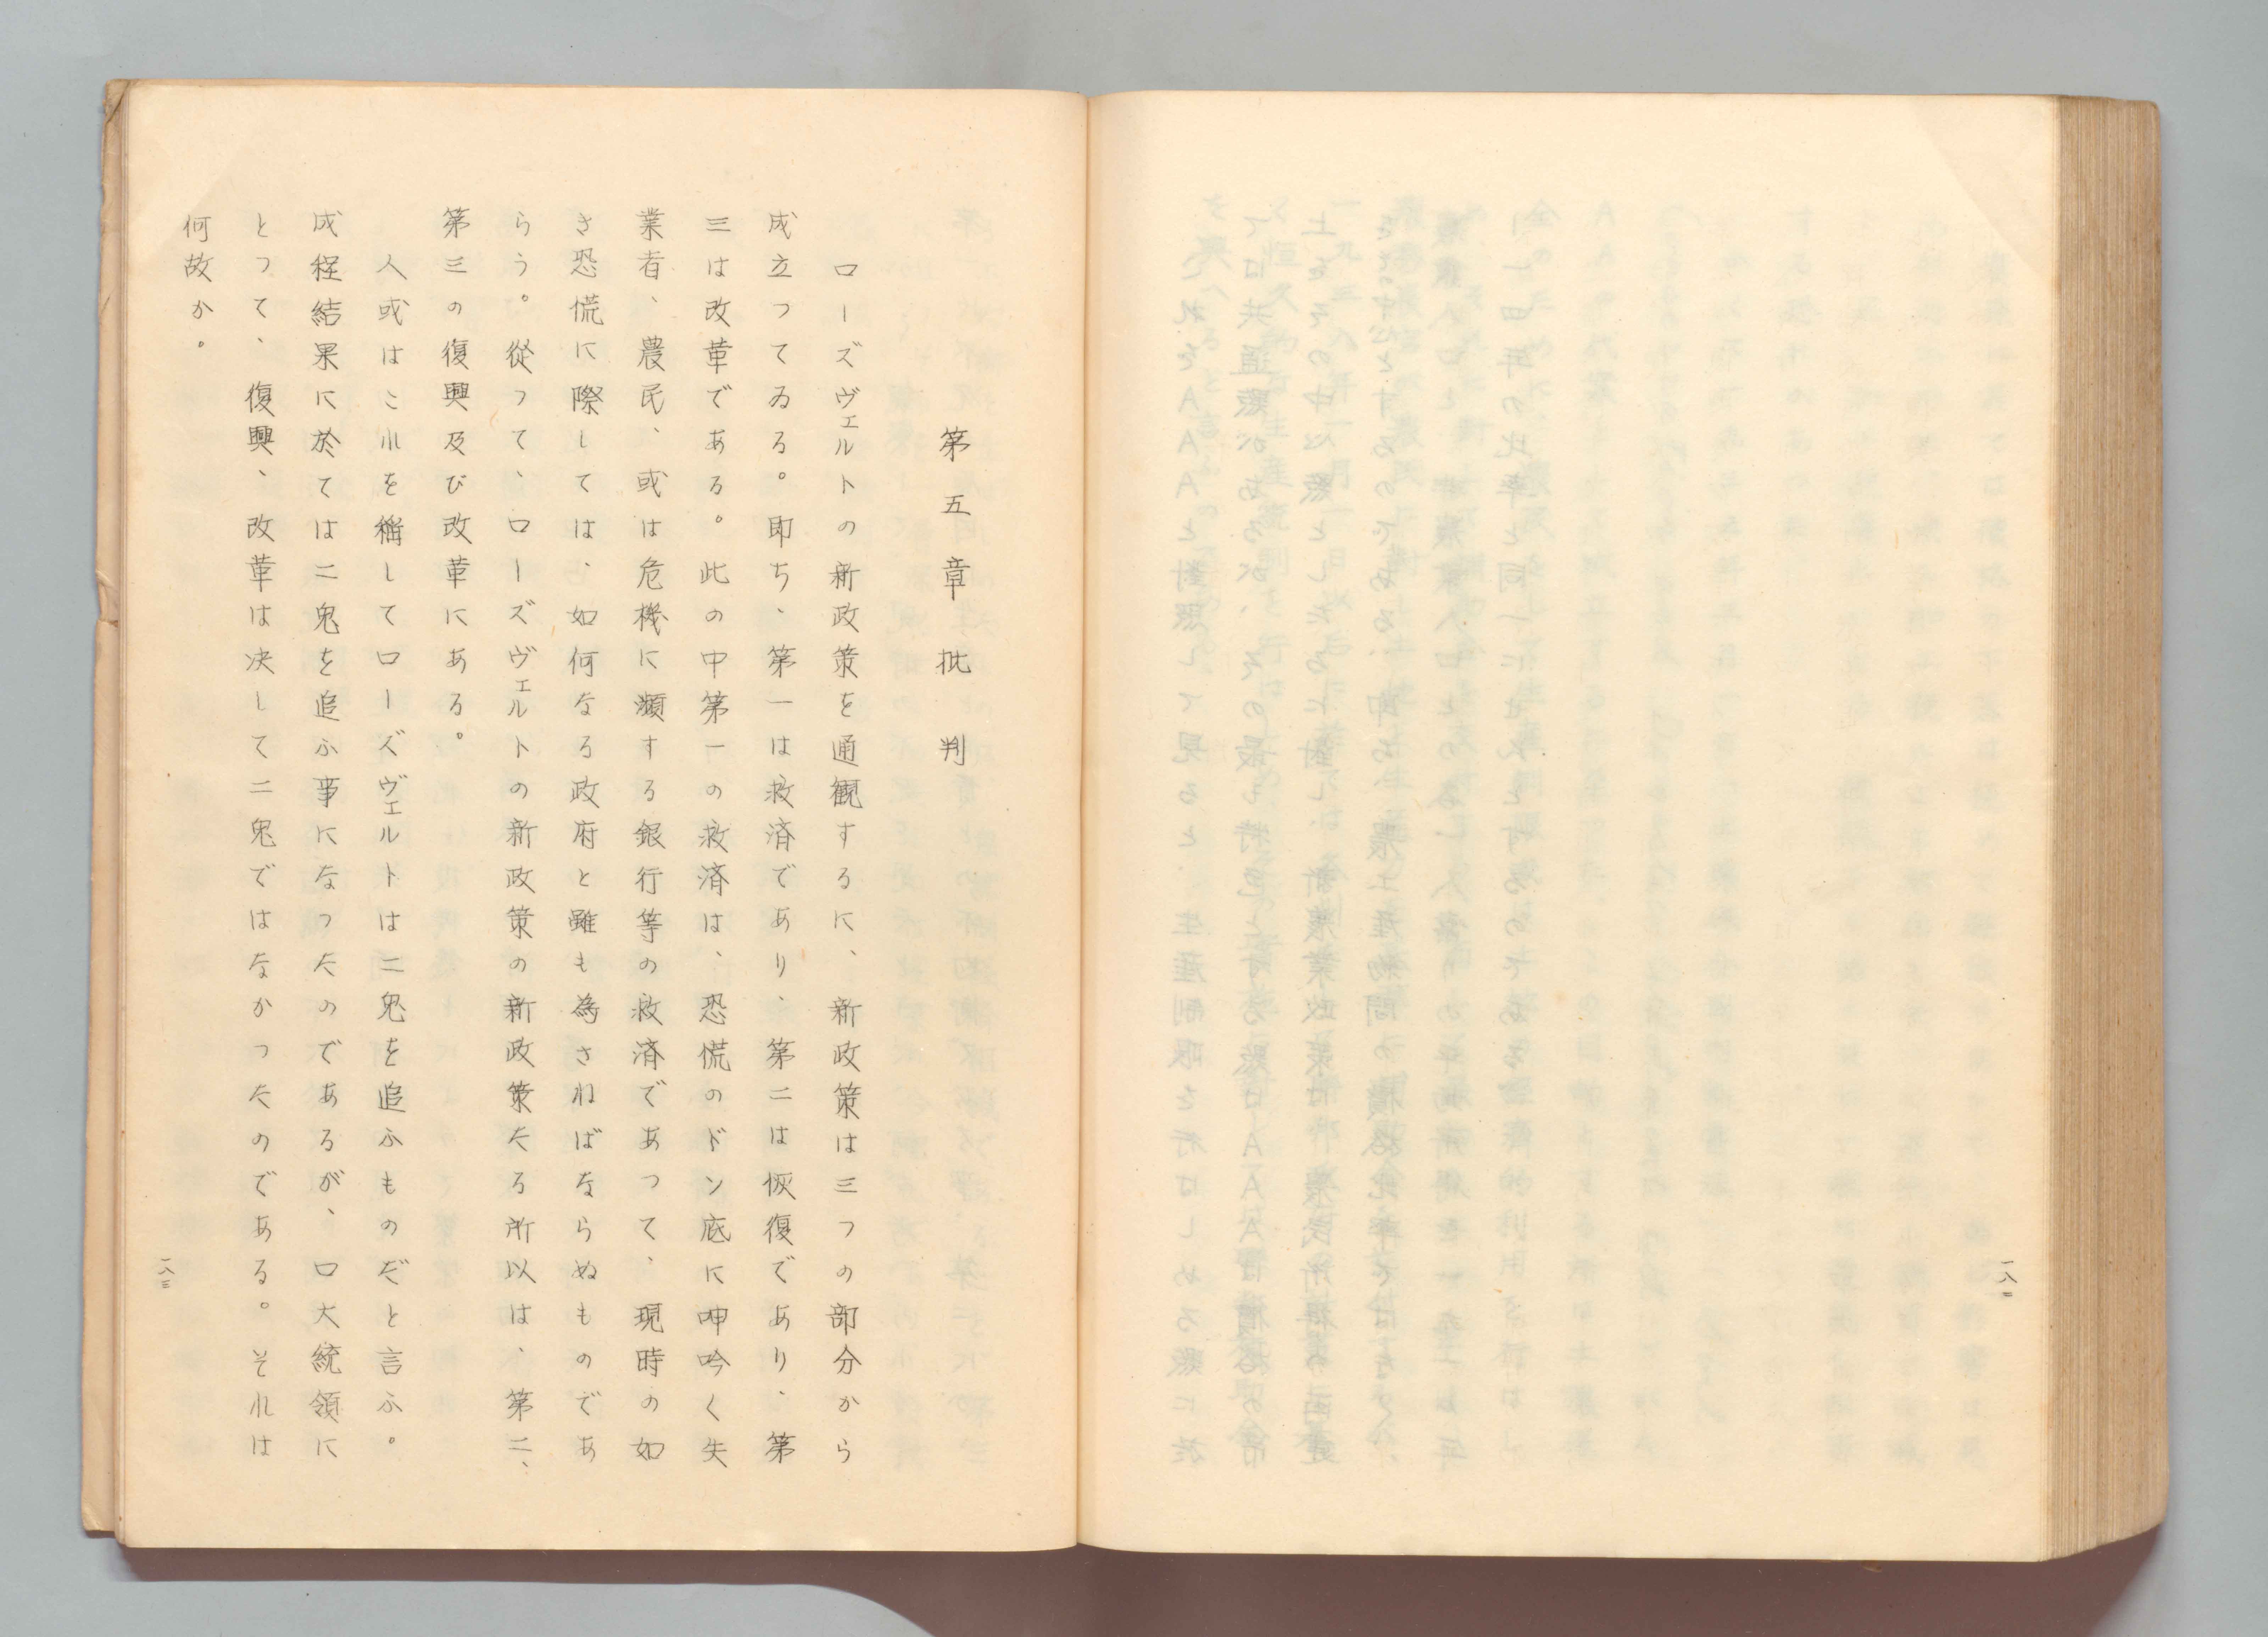 一八二
第五章 批判
ローズヴェルトの新政策を通観するに、新政策は三つの部分から
成立つてゐる。即ち、第一は救済であり、第二は恢復であり、第
三は改革である。此の中第一の救済は、恐慌のドン底に呻吟く失
業者、農民、或は危機に瀕する銀行等の救済であつて、現時の如
き恐慌に際しては、如何なる政府と雖も為さねばならぬものであ
らう。従つて、ローズヴェルトの新政策の新政策たる所以は、第二、
第三の復興及び改革にある。
人或はこれを稱してローズヴェルトは二兎を追ふものだと言ふ。
成程結果に於ては二兎を追ふ事になつたのであるが、ロ大統領に
とつて、復興、改革は決して二兎ではなかつたのである。それは
何故か。
一八三